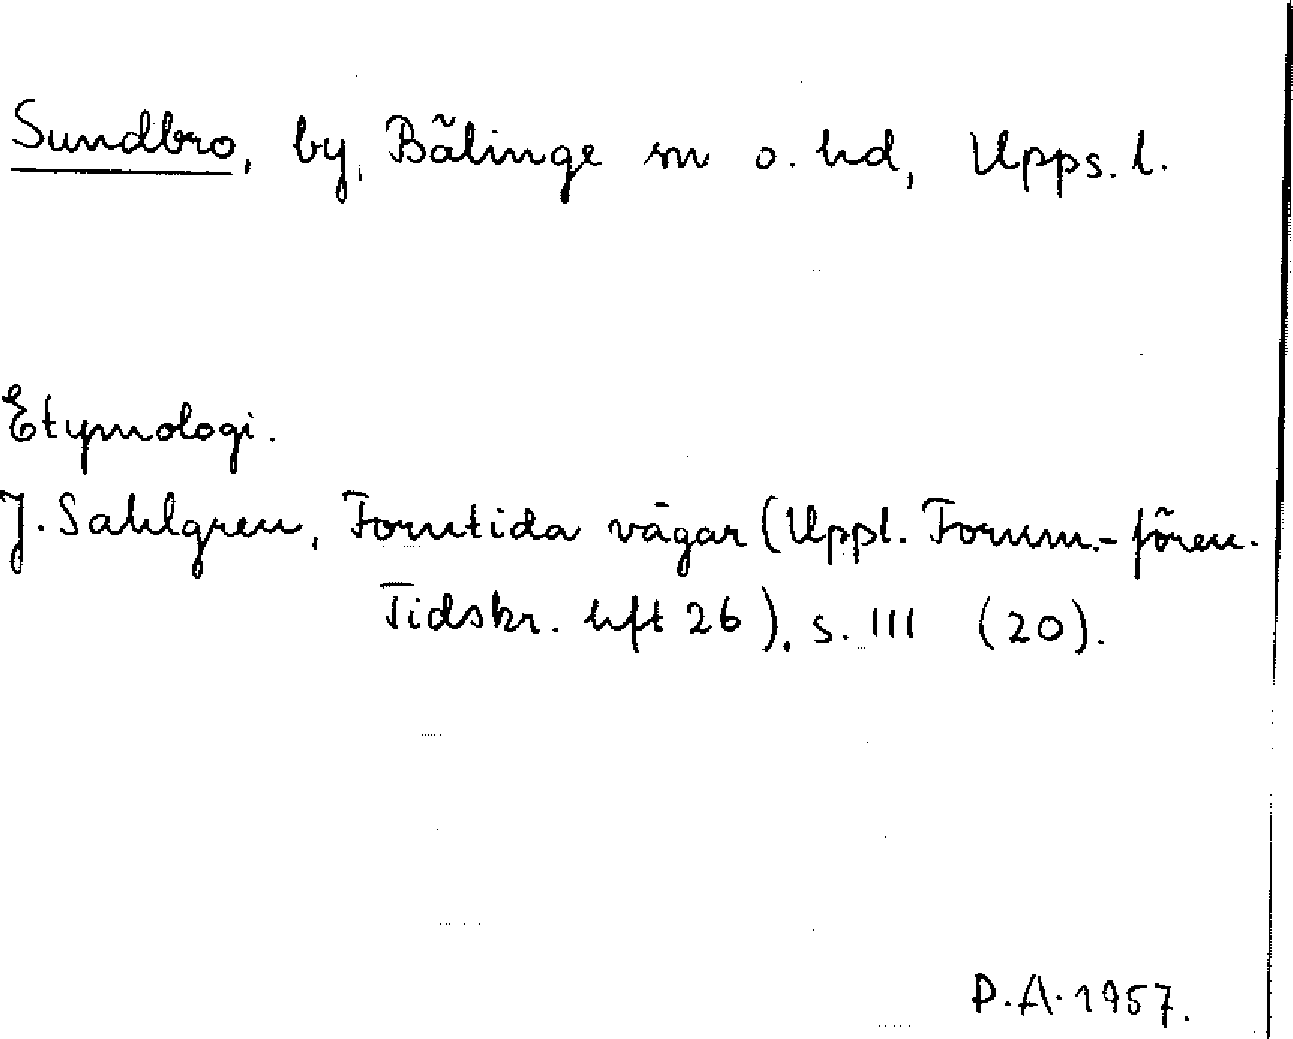 Sundbro, by, Bälinge sn o. hd, Upps. l.
Etymologi.
J. Sahlgren, Forntida vägar (Uppl. Fornm.-fören.
Tidskr. hft 26), s. III (20).
P.A. 1957.